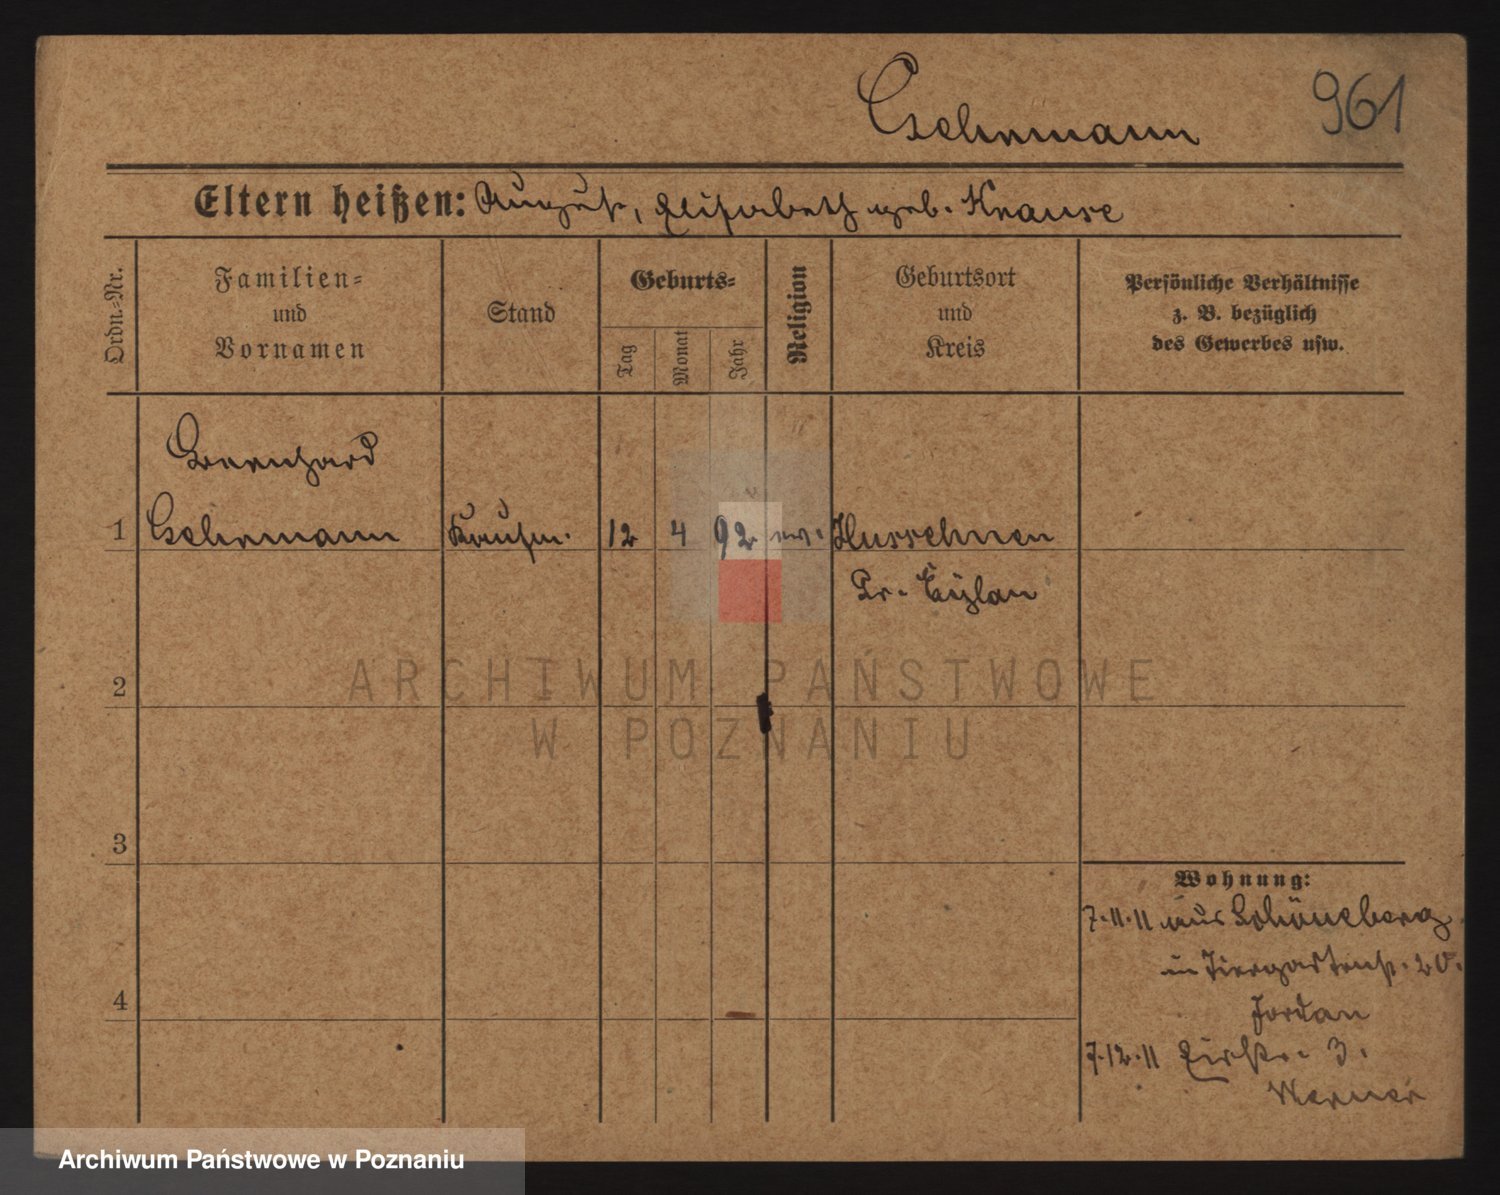 Oschmann 961
Eltern heißen: August, Elisabeth geb. Krause
Ordn.-Nr.
Familien-
und
Vornamen
Stand
Geburts-
Tag
Monat
Jahr
Religion
Geburtsort
und
Kreis
Persönliche Verhältnisse
z. B. bezüglich
des Gewerbes usw.
Bernhard
1 Kaufm. 12 4 92 ev. Husschnen
Pr. Eylau
2
3
4
Wohnung:
7.11.11 aus Schöneberg
in Tiergartenstr. 20.
Jordan
7.12.11 3.
Werner
ARCHIWUM PAŃSTWOWE
W POZNANIU
Archiwum Państwowe w Poznaniu